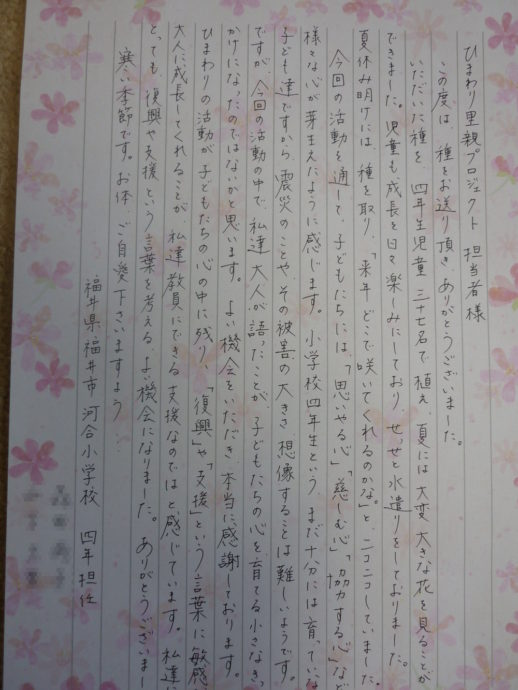 ひまわり里親プロジェクト 担当者様
この度は、種をお送り頂き、ありがとうございました。
いただいた種を、四年生児童 三十七名で植え、夏には大変大きな花を見ることが
できました。児童も成長を日々楽しみにしており、せっせと水遣りをしておりました。
夏休み明けには、種を取り、「来年、どこで咲いてくれるのかな。」と、ニコニコしていました。
今回の活動を通して、子どもたちには、「思いやる心」「慈しむ心」「協力する心」など
様々な心が芽生えたように感じます。小学校四年生という、まだ十分には育っていな
子ども達ですから、震災のことや、その被害の大きさ、想像することは難しいようです。
ですが、今回の活動の中で、私達大人が語ったことが、子どもたちの心を育てる小さなきっ
かけになったのではないかと思います。よい機会をいただき、本当に感謝しております。
ひまわりの活動が子どもたちの心の中に残り、「復興」や「支援」という言葉に敏感
大人に成長してくれることが、私達教員にできる支援なのではと感じています。私達に
とっても、復興や支援という言葉を考える、よい機会になりました。ありがとうございまし
寒い季節です。お体、ご自愛下さいますよう
福井県福井市河合小学校 四年担任